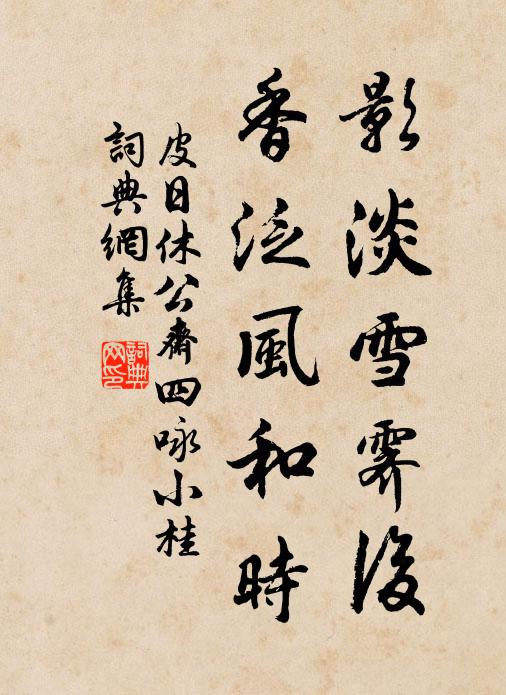 影淡雪霽後
香泛風和時
皮日休公齋四咏小桂
詞典網集
詞典網印